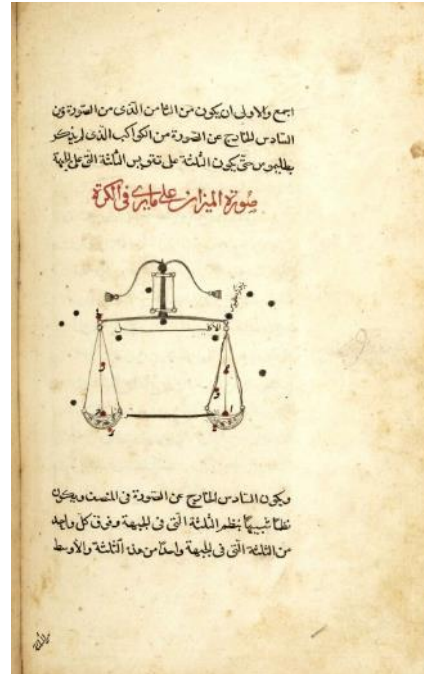 اجمع والاولى ان يكون من الثامن الذى من الصورة ومن
السادس الخارج عن الصورة من الكواكب الذى لم يذكر
بطليموس حتى يكون الثلثة على تقويس الثلثة التى على الجبهة
صورة الميزان على ما يرى فى الكرة
ويكون السادس الخارج عن الصورة فى المنصف ويكون
نظما شبيها بنظم الثلثة التى فى الجبهة وفوق كل واحد
من الثلثة التى فى الجبهة واحدا من هذه الثلثة والاوسط